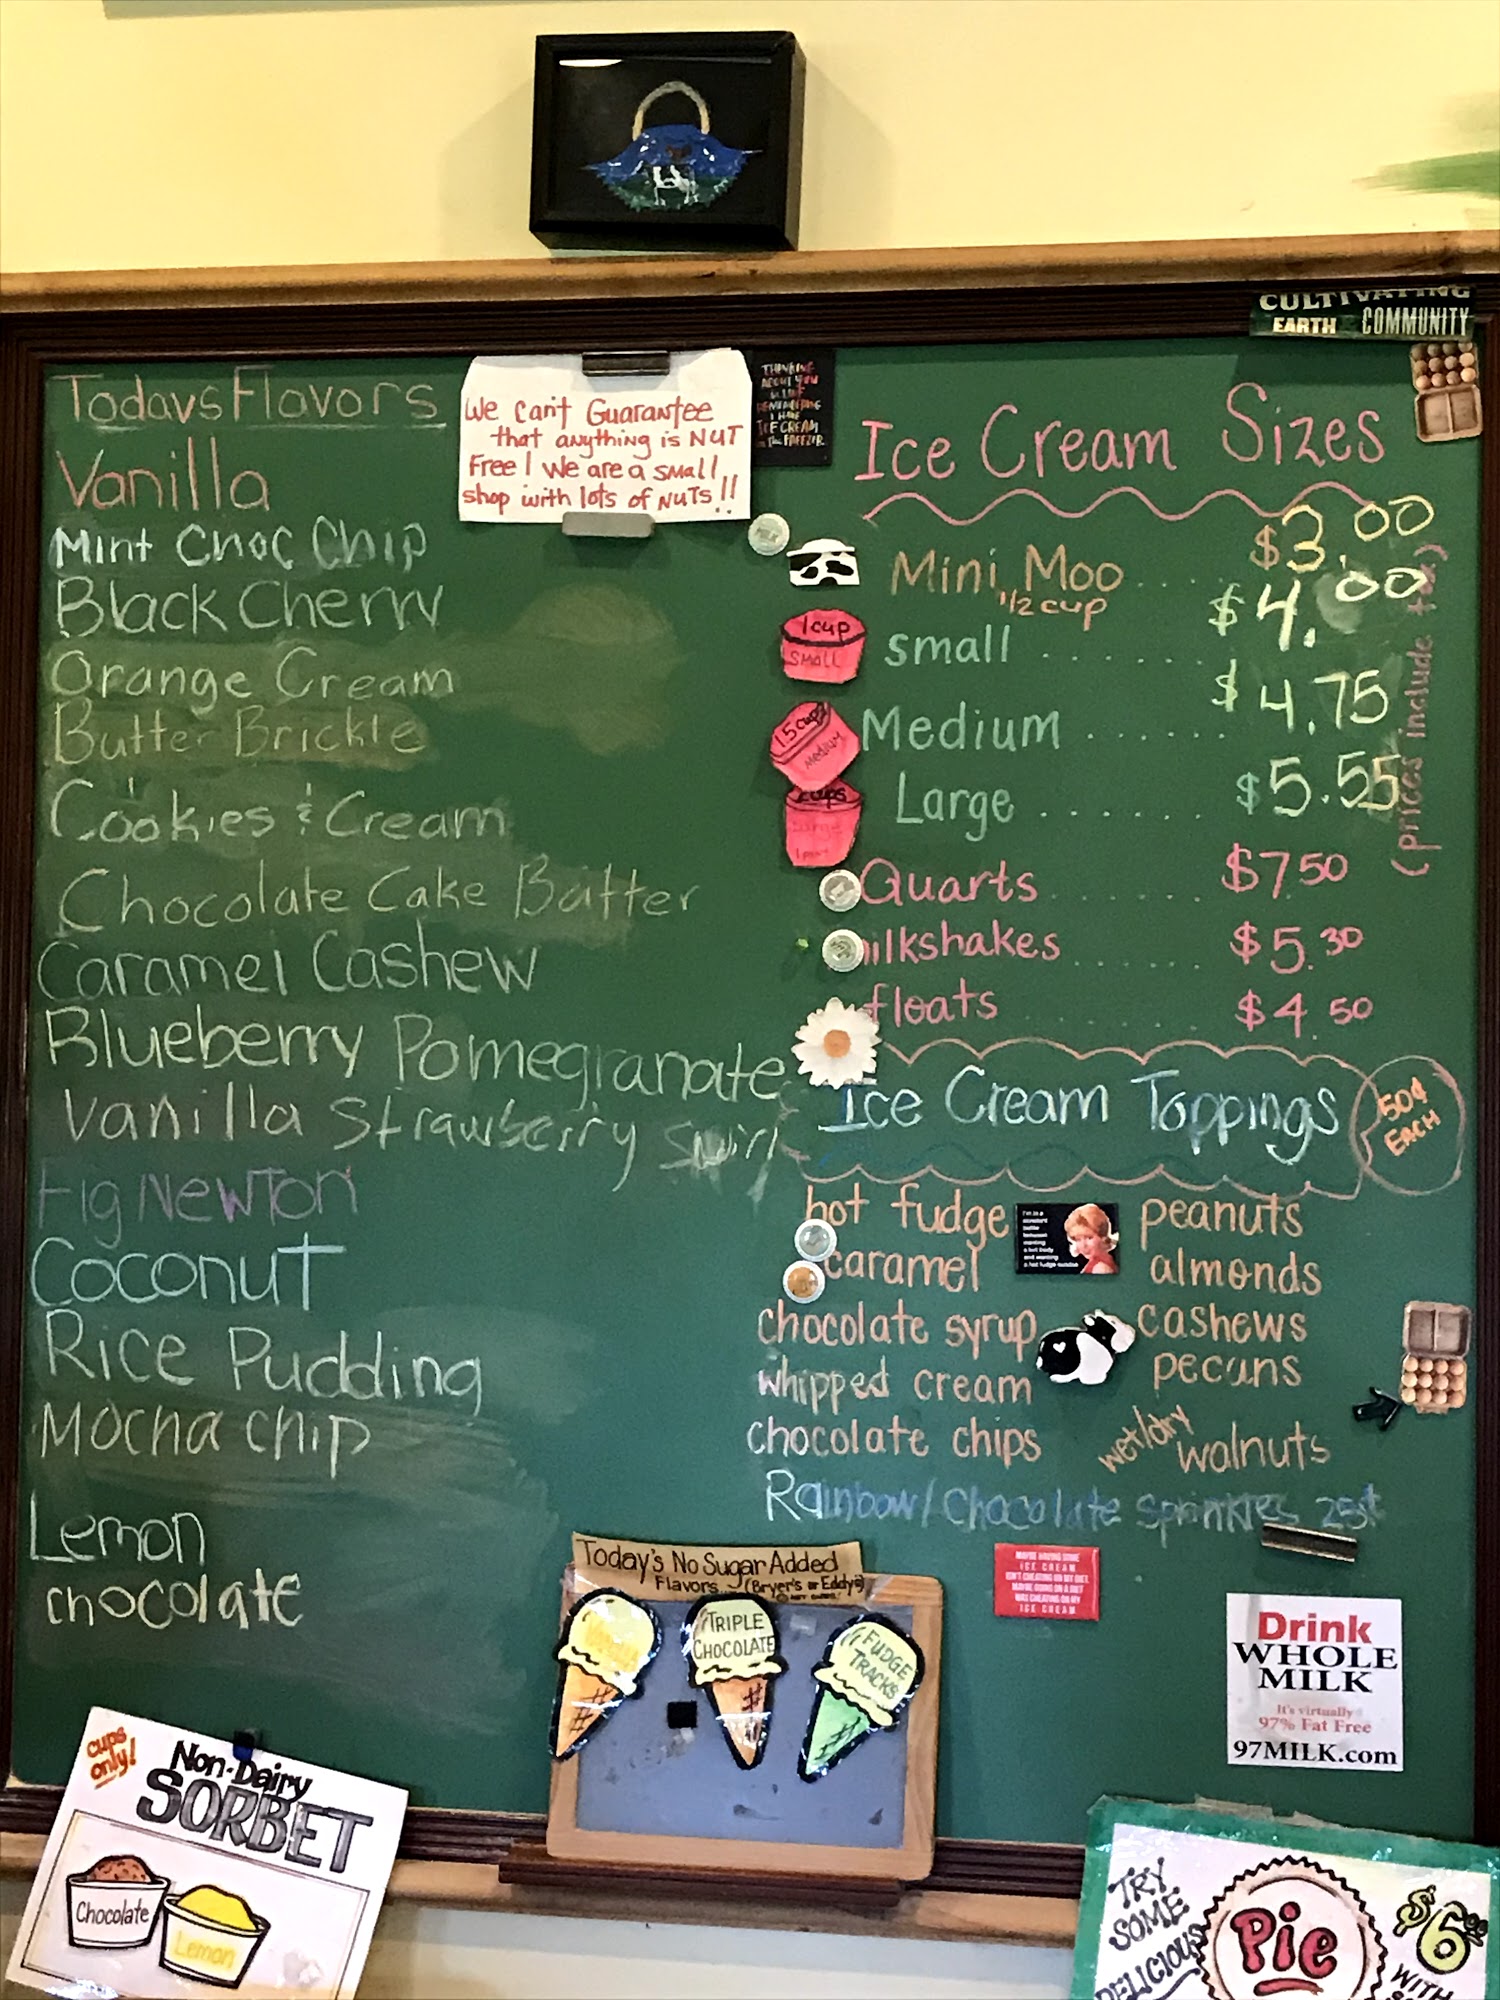 CULTIVATING
EARTH COMMUNITY
Today's Flavors
Vanilla
Mint Choc Chip
Black Cherry
Orange Cream
Butter Brickle
Cookies & Cream
Chocolate Cake Batter
Caramel Cashew
Blueberry Pomegranate
Vanilla Strawberry Swirl
Fig Newton
Coconut
Rice Pudding
Mocha chip
Lemon
chocolate
We can't Guarantee
that anything is NUT
Free! We are a small
shop with lots of NUTS!!
THINKING
ABOUT YOU
REMEMBERING
I HAVE
ICE CREAM
in the FREEZER
Ice Cream Sizes
Mini Moo.... $3.00
1/2 cup
1 cup
SMALL
small ....... $4.00
1.5 cups
MEDIUM
Medium ....... $4.75
cups
Large ....... $5.55
Quarts ....... $7.50
ilkshakes ....... $5.30
floats ....... $4.50
(prices include tax)
Ice Cream Toppings
50¢
EACH
hot fudge
caramel
chocolate syrup
whipped cream
chocolate chips
peanuts
almonds
cashews
pecans
wet/dry walnuts
Rainbow/Chocolate Sprinkles 25¢
Today's No Sugar Added
Flavors (Bryer's or Eddy's)
Vanilla
TRIPLE
CHOCOLATE
FUDGE
TRACKS
MAYBE HAVING SOME
ICE CREAM
ISN'T CHEATING ON MY DIET.
MAYBE GOING ON A DIET
WAS CHEATING ON MY
ICE CREAM
Drink
WHOLE
MILK
It's virtually
97% Fat Free
97MILK.com
cups
only!
Non-Dairy
SORBET
Chocolate
Lemon
TRY
SOME
DELICIOUS
Pie
$6.00
WITH